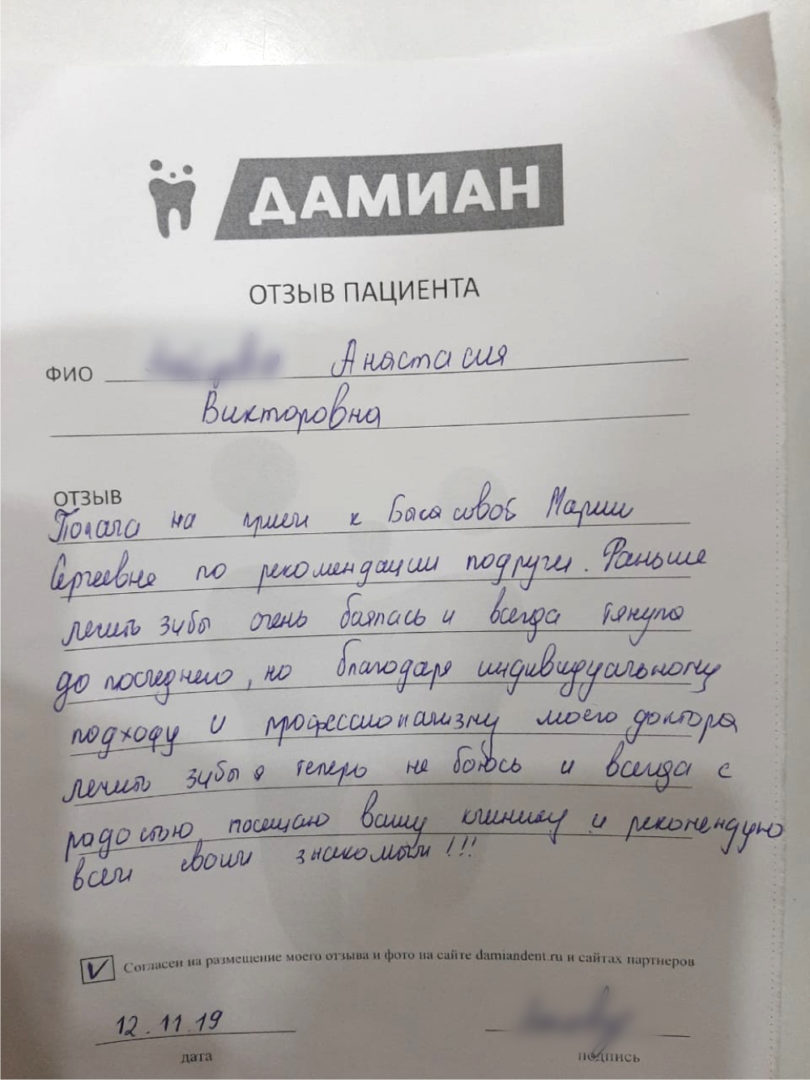 ДАМИАН
ОТЗЫВ ПАЦИЕНТА
ФИО Анастасия
Викторовна
ОТЗЫВ
Попала на прием к Марии
Сергеевне по рекомендации подруги. Раньше
лечить зубы очень боялась и всегда тянула
до последнего, но благодаря индивидуальному
подходу и профессионализму моего доктора
лечить зубы я теперь не боюсь и всегда с
радостью посещаю вашу клинику и рекомендую
всем своим знакомым!!!
Согласен на размещение моего отзыва и фото на сайте damiandent.ru и сайтах партнеров
12.11.19
дата подпись